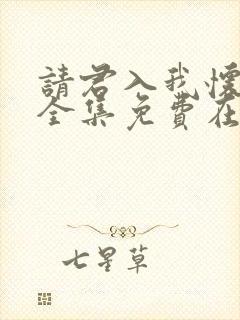 請君入我懷
全集免費在
七星草